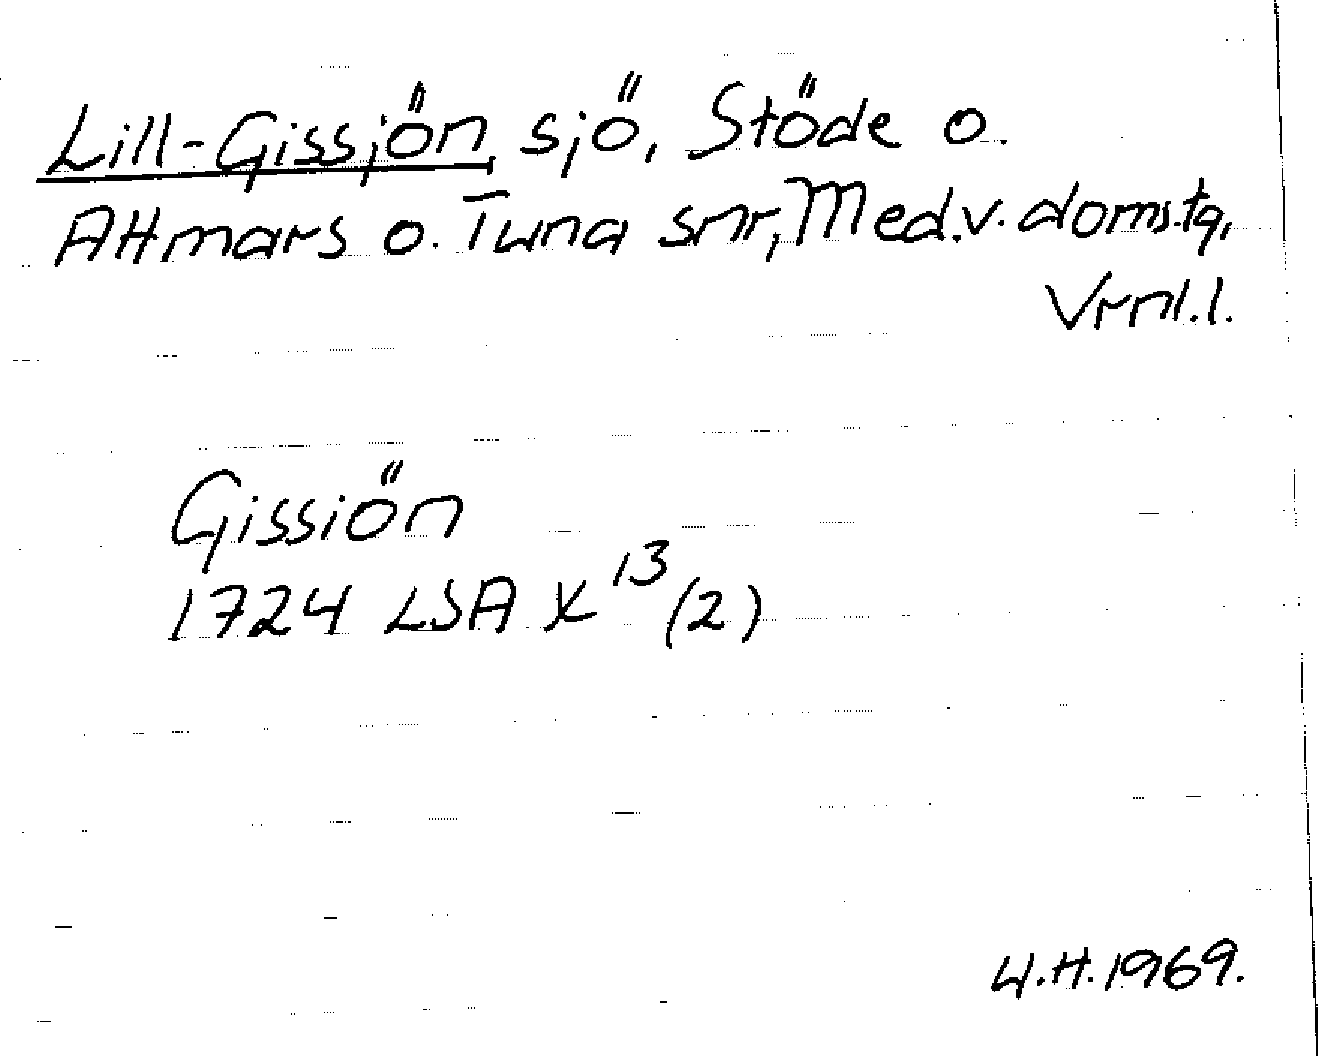 Lill-Gissjön, sjö, Stöde o.
Attmars o. Tuna snr, Med.v. doms.tg,
Vrnl.l.
Gissiön
1724 LSA X 13 (2)
U.H. 1969.